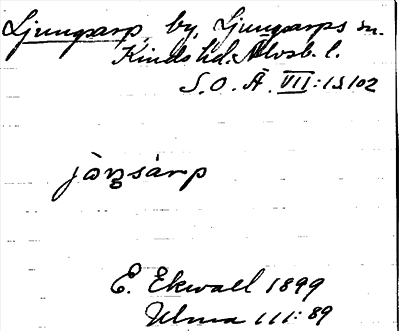 Ljungsarp, by, Ljungsarps sn.
Kinds hd. Älvsb. l.
S.O.Ä. VII:1 s 102
E. Ekwall 1899
Ulma 111:89